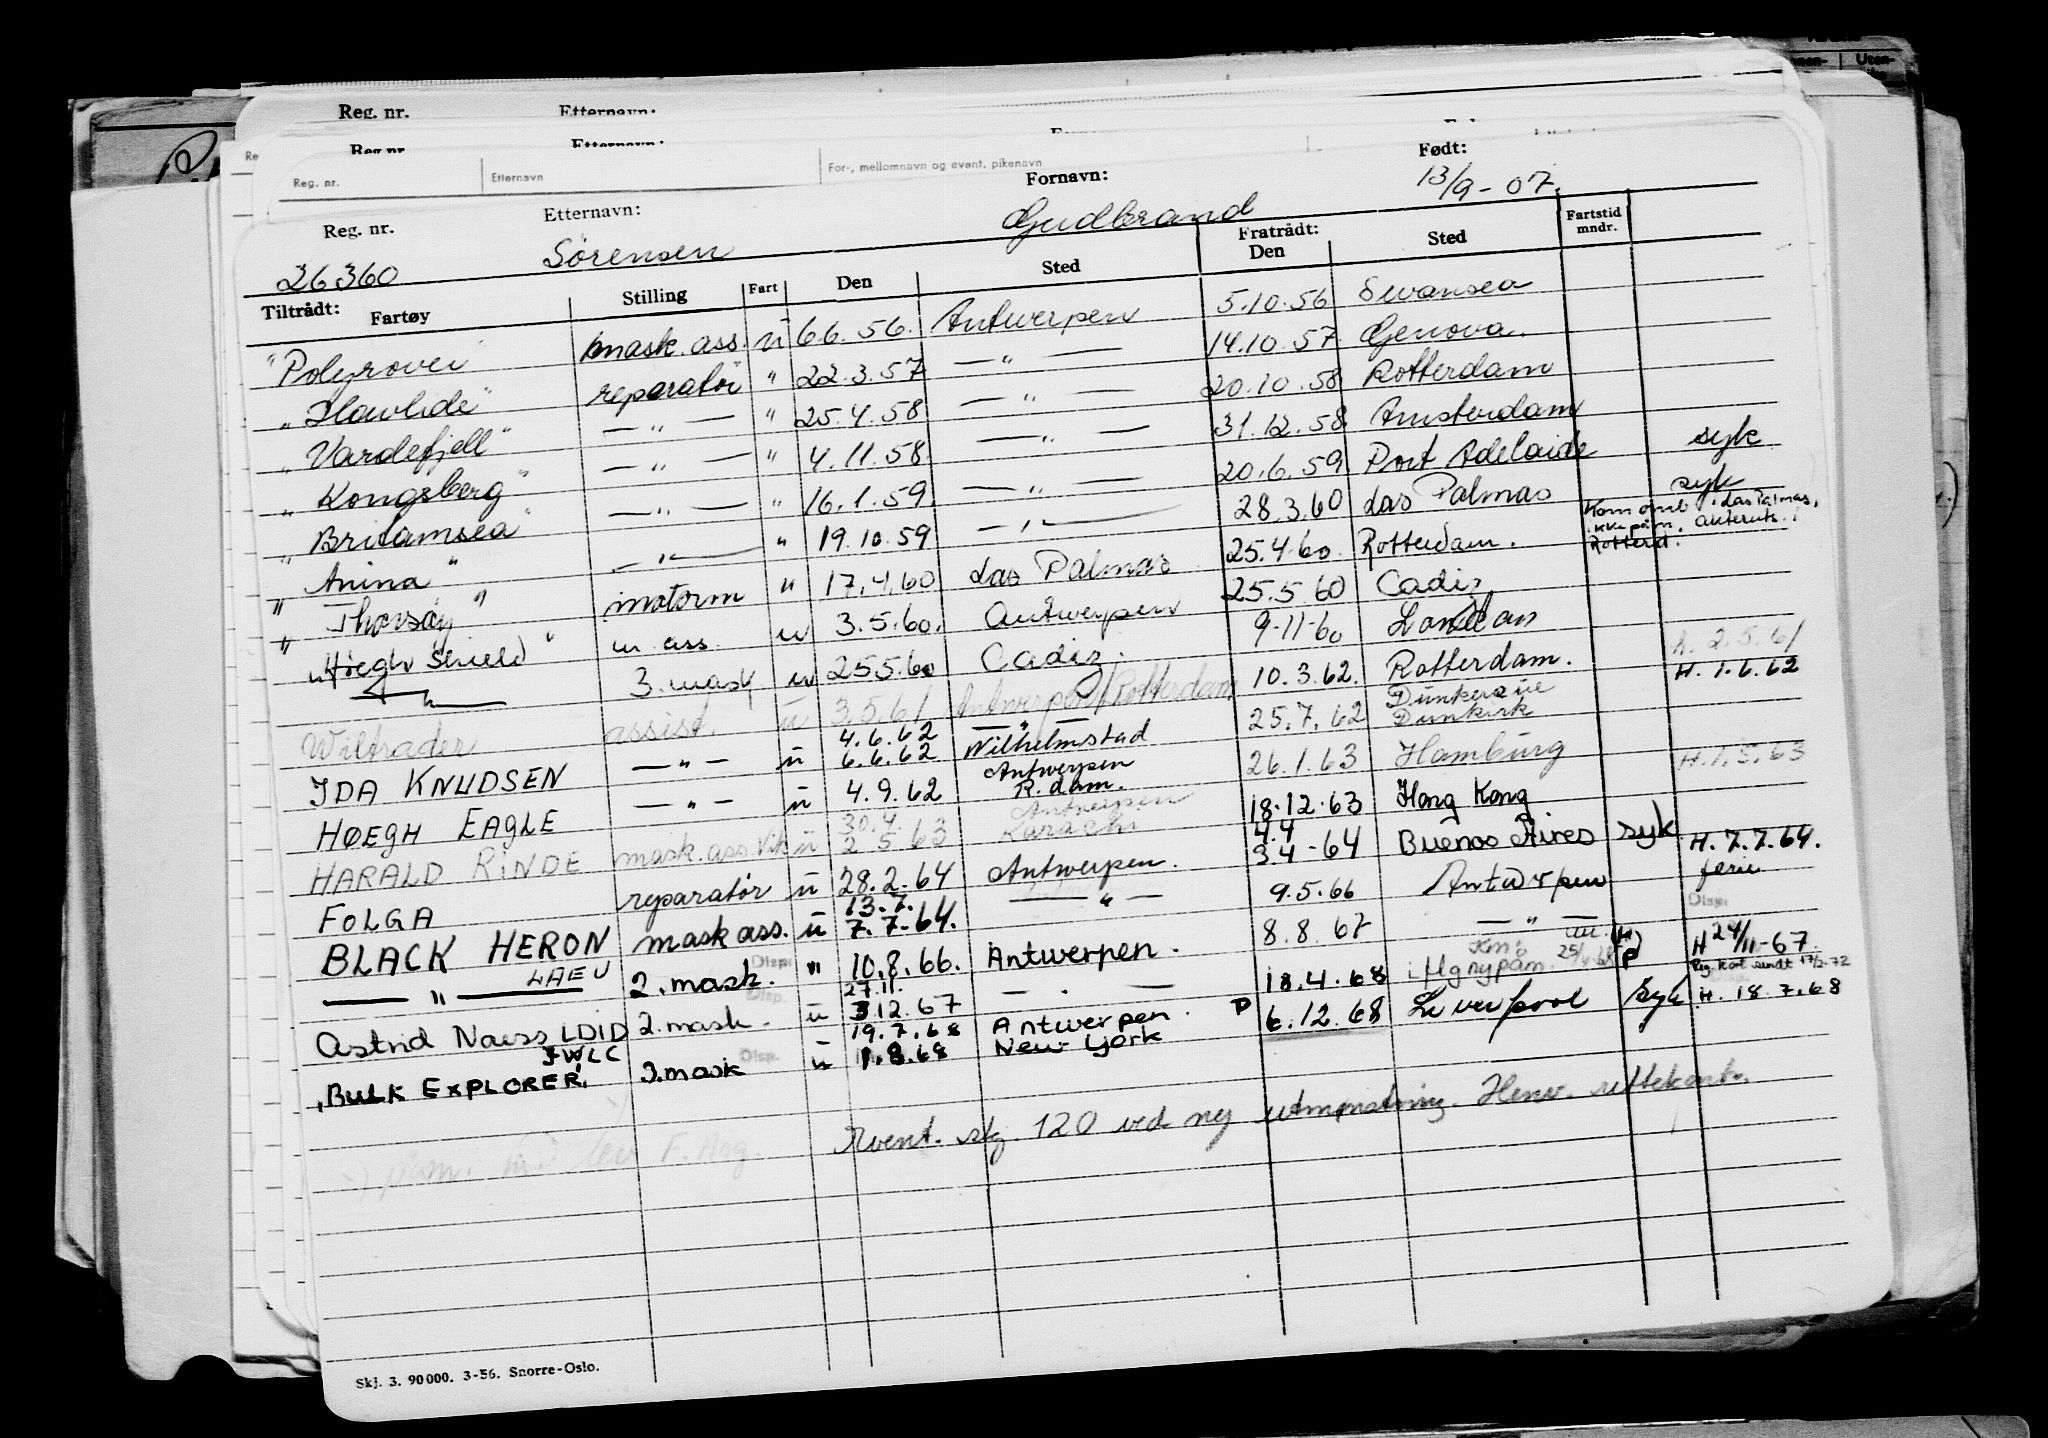 Reg. nr. Etternavn:
Reg. nr. Etternavn:
Reg. nr. Etternavn For-, mellomnavn og event. pikenavn
Reg. nr. Etternavn: Fornavn: Født:
26360 Sörensen Gudbrand 13/9-07.
Tiltrådt: Fratrådt: Fartstid mndr.
Fartøy Stilling Fart Den Sted Den Sted
"Polyrover" mask. ass. u 6.6.56. Antwerpen 5.10.56 Swansea
" " reparatør " 22.3.57 — " — 14.10.57 Genova.
"Vardefjell" — " — " 25.4.58 — " — 20.10.58 Rotterdam
"Kongsberg" — " — " 4.11.58. — " — 31.12.58 Amsterdam
"Britamsea" — " — " 16.1.59. — " — 20.6.59 Port Adelaide syk
"Anina" — " — " 19.10.59 — " — 28.3.60 Las Palmas syk
"Thorsøy" motorm " 17.4.60 Las Palmas 25.4.60. Rotterdam. Kom omb i Las Palmas, ikke påm. akterut i Rotterd.
"Høegh Shield" m. ass. u 3.5.60. Antwerpen 25.5.60 Cadiz
— " — 3. mask u 25.5.60 Cadiz. 9-11-60 London
Wiltrader assist. u 3.5.61 Antwerpen/Rotterdam 10.3.62. Rotterdam. h. 2.5.61
IDA KNUDSEN — " — u 4.6.62 6.6.62 — " — Wilhelmstad 25.7.62 Dunkerque Dunkirk H. 1.6.62
HØEGH EAGLE — " — u 4.9.62 Antwerpen R.dam. 26.1.63 Hamburg
HARALD RINDE mask. ass. Vik u 30.4. 2.5.63 Antwerpen Karachi 18.12.63 Hong Kong H. 1.5.63
FOLGA reparatør u 28.2.64 Antwerpen. 4.4 3.4-64 Buenos Aires syk
BLACK HERON mask ass. u 13.7. 7.7.64. — " — 9.5.66 Antwerpen H. 7.7.64. ferie
— " — LAEU 2. mask. " 10.8.66. Antwerpen. 8.8.67 — " — Disp.
Astrid Naess LDID 2. mask. u 27.11. 3.12.67 — " — 18.4.68 H 24/11-67. Reg. kort sendt 17/2-72
BULK EXPLORER. JWLC 3. mask u 19.7.68 1.8.68 Antwerpen. New York P 6.12.68 Liverpool syk H. 18.7.68
Disp.
Disp.
Disp.
Avent. skj. 120 ved ny utmønstring. Henv. rettekort.
Skj. 3. 90000. 3-56. Snorre-Oslo.